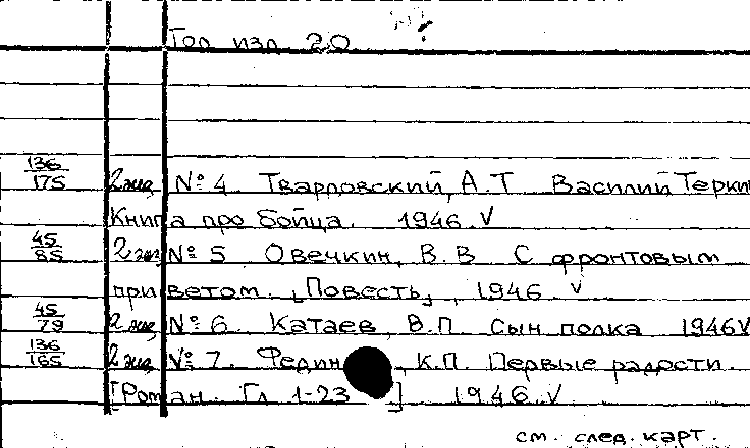 Год изд. 20
136/175 2 экз. № 4 Твардовский, А.Т Василий Терки
Книга про бойца. 1946. V
45/85 2 экз. № 5 Овечкин, В.В С фронтовым
приветом. [Повесть], 1946 V
45/79 2 экз. № 6. Катаев, В.П. Сын полка 1946 V
136/165 2 экз. № 7. Федин, К.П. Первые радости.
[Роман. Гл 1-23] 1946. V
см. след. карт.